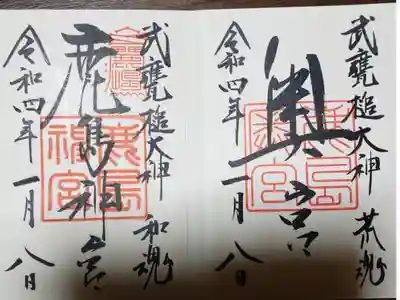 武甕槌大神 荒魂
奥宮
令和四年一月八日
武甕槌大神 和魂
鹿島神宮
鹿島神宮
令和四年一月八日